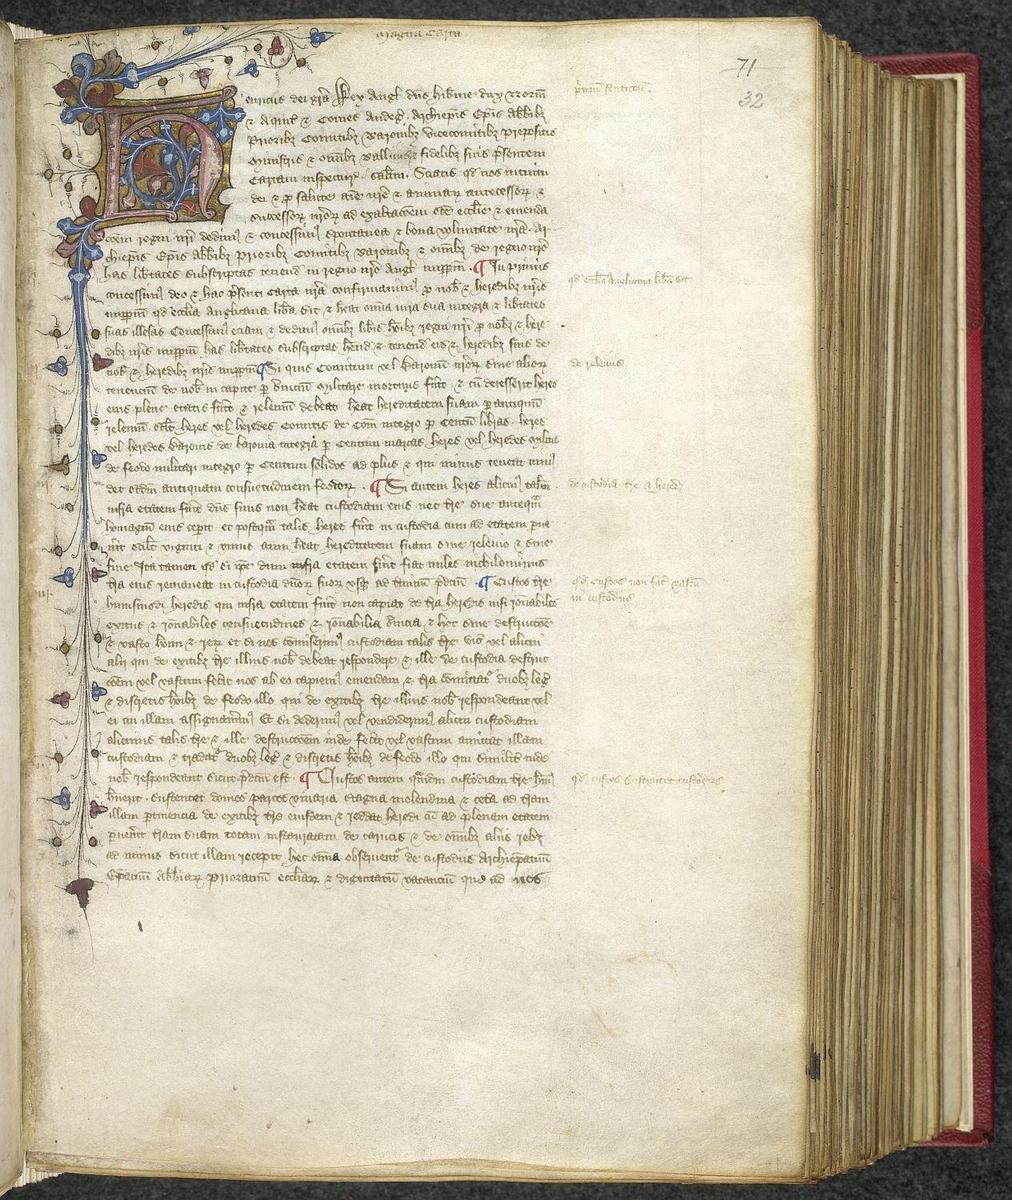 Magna Carta
71
32
enricus dei grã Rex Angl dñs hibnie dux Norm
⁊ Aquit ⁊ Comes Andeg. Archiepis Epis abbibꝫ
Prioribꝫ Comitibꝫ Baronibꝫ vicecomitibꝫ prepositis
Ministris ⁊ omibꝫ Ballivis ⁊ fidelibꝫ suis p̃sentem
Cartam inspecturis saltm. Sciatis qđ nos intuitu
dei ⁊ p salute aĩe nr̃e ⁊ animaꝝ antecessoꝝ ⁊
successoꝝ nr̃oꝝ ad exaltacõem sc̃e eccl̃ie ⁊ emenda
cõem regni nr̃i dedimꝰ ⁊ concessimꝰ spontanea ⁊ bona voluntate nr̃a Ar
chiepis Epis abbibꝫ Prioribꝫ Comitibꝫ Baronibꝫ ⁊ omibꝫ de regno nr̃o
has lib̃tates subscriptas tenend in regno nr̃o Angl imppm̃. ¶ In primis
concessimꝰ deo ⁊ hac p̃senti carta nr̃a confirmavimꝰ p nob̃ ⁊ heredibꝫ nr̃is
imppm̃ qđ eccl̃ia Anglicana lib̃a sit ⁊ h̃eat om̃ia iura sua integra ⁊ lib̃tates
suas illesas Concessimꝰ eciam ⁊ dedimꝰ omibꝫ lib̃is hoĩbꝫ regni nr̃i p nob̃ ⁊ here
dibꝫ nr̃is imppm̃ has lib̃tates subscriptas h̃end ⁊ tenend eis ⁊ heredibꝫ suis de
nob̃ ⁊ heredibꝫ nr̃is imppm̃ ¶ Si quis Comitum vel Baronum nr̃oꝝ sive alioꝝ
tenencium de nob̃ in capite p̱ s̃vicium militare mortuus fũit ⁊ cũ decesserit heres
eius plene etatis fũit ⁊ relevium debeat h̃eat hereditatem suam p̱ antiquum
relevium scil̃t heres vel heredes Comitis de Com̃ integro p̱ Centum libras heres
vel heredes Baronis de baronia integra p̱ Centum marcas heres vel heredes militis
de feodo militari integro p̱ Centum solidos ad plus ⁊ qui minus tenuit minꝰ
det scđm antiquam consuetudinem feodoꝝ. ¶ Si autem heres alicuiꝰ taliũ
infra etatem fũit dñs suus non h̃eat custodiam eius nec tr̃e sue anteq̃m
homagium eius cepit et postq̃m talis heres fũit in custodia cum ad etatem pve
nit scil̃t viginti ⁊ unius anni h̃eat hereditatem suam sine relevio ⁊ sine
fine Ita tamen qđ si ip̃e dum infra etatem fũit fiat miles nichilominus
tr̃a eius remaneat in custodia dñoꝝ suoꝝ usqꝫ ad tm̃inum p̃dcm̃ ¶ Custos tr̃e
huiusmodi heredis qui infra etatem fũit non capiat de tr̃a heredis nisi rõnabiles
exitus ⁊ rõnabiles consuetudines ⁊ rõnabilia s̃vicia ⁊ hoc sine destruccõe
⁊ vasto hoĩm ⁊ reꝝ et si nos com̃iserimꝰ custodiam talis tr̃e vic̃ vel alicui
alii qui de exitibꝫ tr̃e illius nob̃ debeat respondere ⁊ ille de custodia destruc
cõem vel vastum fec̃it nos ab eo capiemꝰ emendam ⁊ tr̃a com̃ittatr duobꝫ leg̃
⁊ discretis hoĩbꝫ de feodo illo qui de exitibꝫ tr̃e illius nob̃ respondeant vel
ei cui illam assignavimꝰ Et si dederimꝰ vel vendiderimꝰ alicui custodiam
alicuius talis tr̃e ⁊ ille destruccõem inde fec̃it vel vastum amittat illam
custodiam ⁊ tradatr duobꝫ leg̃ ⁊ discretis hoĩbꝫ de feodo illo qui similit̃ inde
nob̃ respondeant sicut p̃dcm̃ est. ¶ Custos autem q̃mdiu custodiam tr̃e huiꝰ
h̃uerit sustentet domos parcos vivaria stagna molendina ⁊ cet̃a ad tr̃am
illam ptinencia de exitibꝫ tr̃e eiusdem ⁊ reddat heredi cũ ad plenam etatem
pven̂it tr̃am suam totam instauratam de carucis ⁊ de omibꝫ aliis rebꝫ
ad minus sicut illam recepit hec om̃ia observentr de custodiis Archiepatuum
Epatuum abbiaꝝ Prioratuum eccl̃iaꝝ ⁊ dignitatum vacancium que ad nos
qđ eccl̃ia Anglicana lib̃a sit
de releviis
de custodia tr̃e ⁊ hered
qđ Custos non fac̃ vastũ
in custodiis
qđ custos sustentet custodias